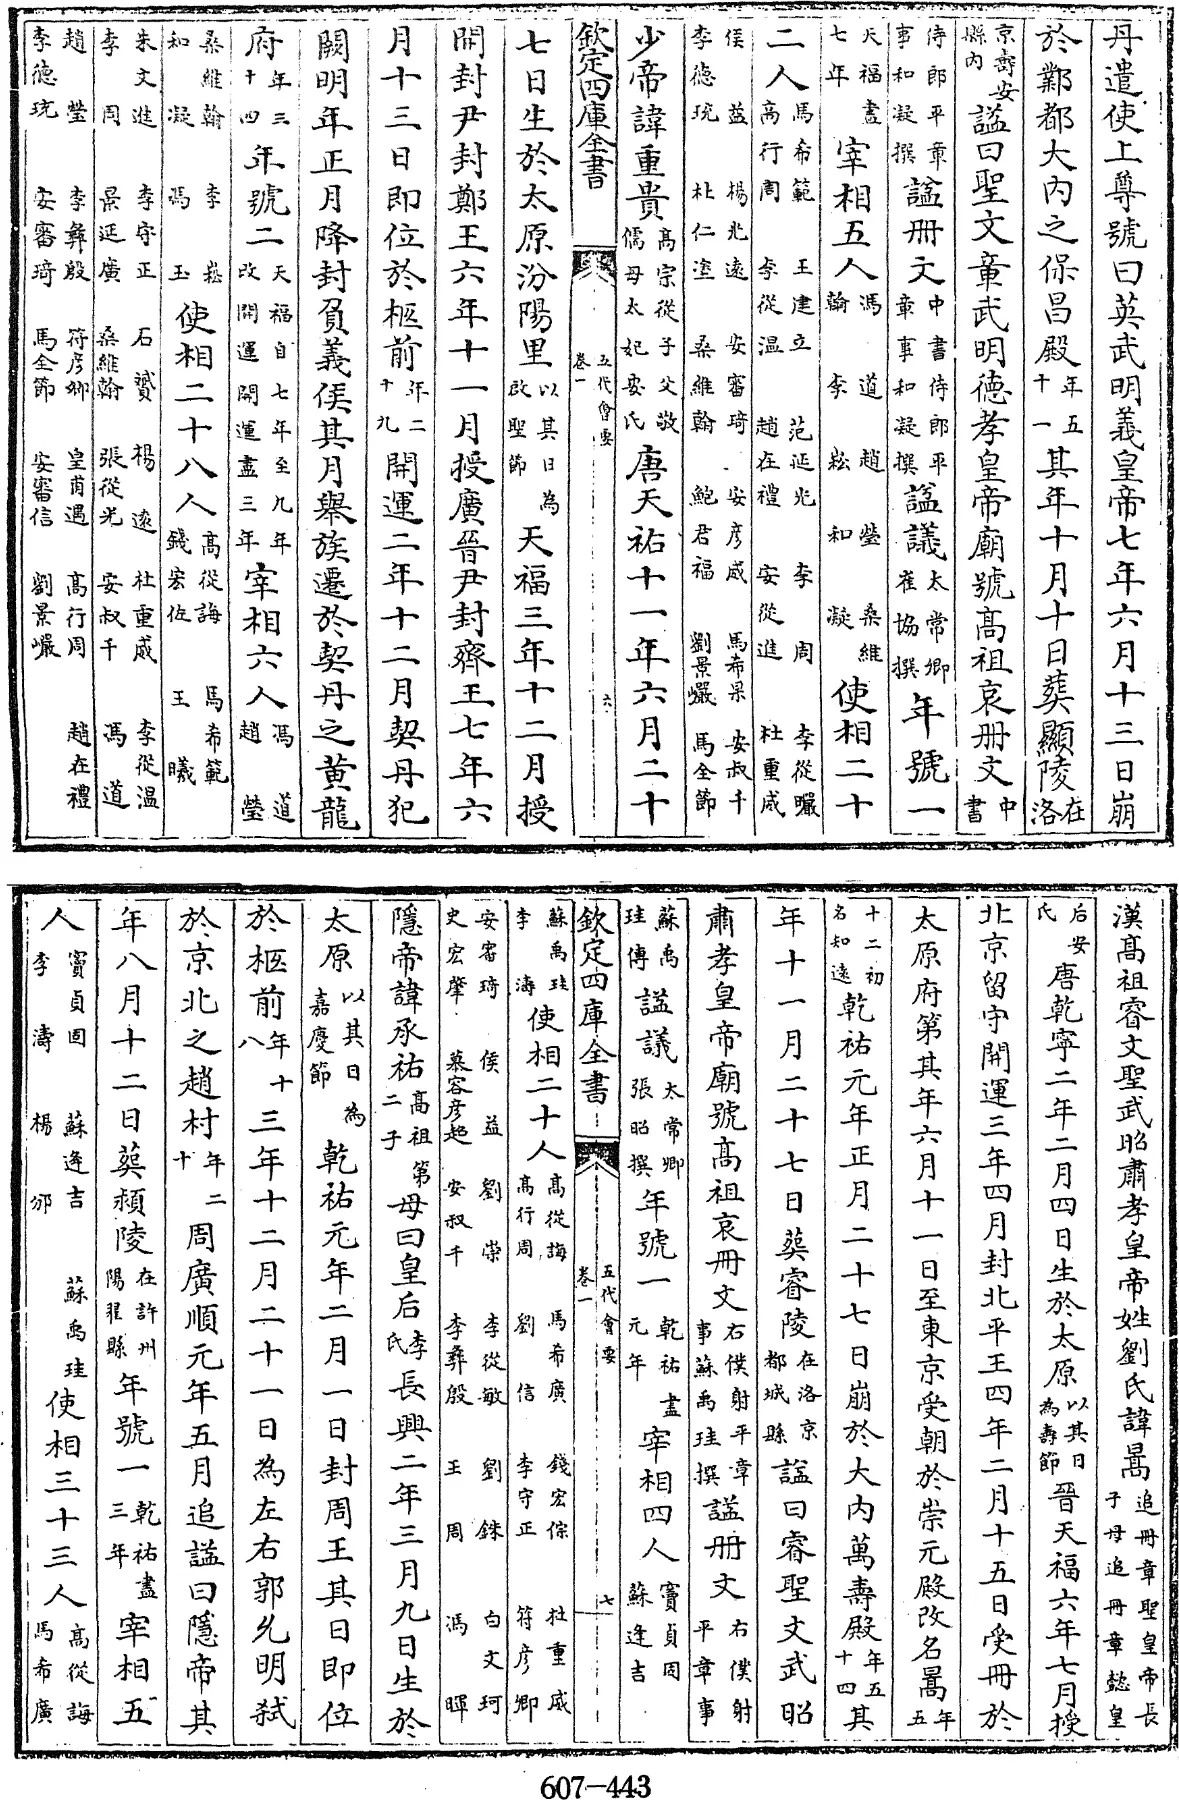 丹遣使上尊號曰英武明義皇帝七年六月十三日崩
於鄴都大内之保昌殿年五十一其年十月十日葬顯陵在洛
京壽安縣内諡曰聖文章武明德孝皇帝廟號髙祖哀册文中書
侍郎平章事和凝撰諡册文中書侍郎平章事和凝撰諡議太常卿崔協撰年號一
天福盡七年宰相五人馮道趙瑩桑維翰李崧和凝使相二十
二人馬希範王建立范延光李周李從曮髙行周李從温趙在禮安從進杜重威
侯益楊光遠安審琦安彦威馬希杲安叔千李德珫杜仁逵桑維翰鮑君福劉景巖馬全節
少帝諱重貴髙宗從子父敬儒母太妃安氏唐天祐十一年六月二十
欽定四庫全書 五代會要卷一 六
七日生於太原汾陽里以其日為啟聖節天福三年十二月授
開封尹封鄭王六年十一月授廣晉尹封齊王七年六
月十三日即位於柩前年二十九開運二年十二月契丹犯
闕明年正月降封負義侯其月舉族遷於契丹之黄龍
府年三十四年號二天福自七年至九年改開運開運盡三年宰相六人馮道趙瑩
桑維翰李崧和凝馮玉使相二十八人髙從誨馬希範錢宏佐王曦
朱文進李守正石贇楊逺杜重威李從温李周景延廣桑維翰張從光安叔千馮道
趙瑩李彝殷符彦卿皇甫遇髙行周趙在禮李德珫安審琦馬全節安審信劉景巖
漢髙祖睿文聖武昭肅孝皇帝姓劉氏諱暠追冊章聖皇帝長子母追冊章懿皇
后安氏唐乾寧二年二月四日生於太原以其日為壽節晉天福六年七月授
北京留守開運三年四月封北平王四年二月十五日受冊於
太原府第其年六月十一日至東京受朝於崇元殿改名暠年五
十二初名知遠乾祐元年正月二十七日崩於大内萬壽殿年五十四其
年十一月二十七日葬睿陵在洛京都城縣諡曰睿聖文武昭
肅孝皇帝廟號髙祖哀冊文右僕射平章事蘇禹珪撰諡册文右僕射平章事
蘇禹珪傳諡議太常卿張昭撰年號一乾祐盡元年宰相四人竇貞固蘇逢吉
欽定四庫全書 五代會要卷一 七
蘇禹珪李濤使相二十人髙從誨馬希廣錢宏倧杜重威髙行周劉信李守正符彦卿
安審琦侯益劉崇李從敏劉銖白文珂史宏肇慕容彦超安叔千李彝殷王周馮暉
隱帝諱承祐髙祖第二子母曰皇后李氏長興二年三月九日生於
太原以其日為嘉慶節乾祐元年二月一日封周王其日即位
於柩前年十八三年十二月二十一日為左右郭允明弑
於京北之趙村年二十周廣順元年五月追諡曰隱帝其
年八月十二日葬頴陵在許州陽翟縣年號一乾祐盡三年宰相五
人竇貞固蘇逢吉蘇禹珪李濤楊邠使相三十三人髙從誨馬希廣
607-443